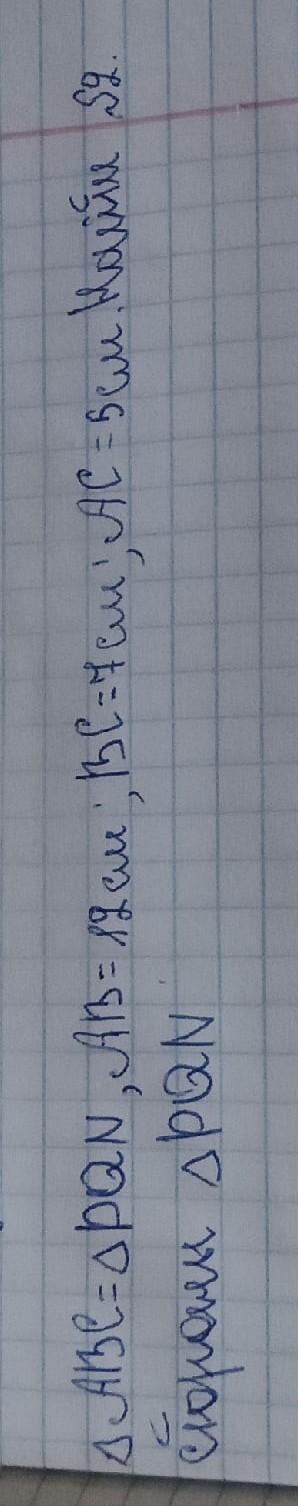 △ABC=△PQN, AB=12см; BC=7см; AC=5см. Найти
стороны △PQN